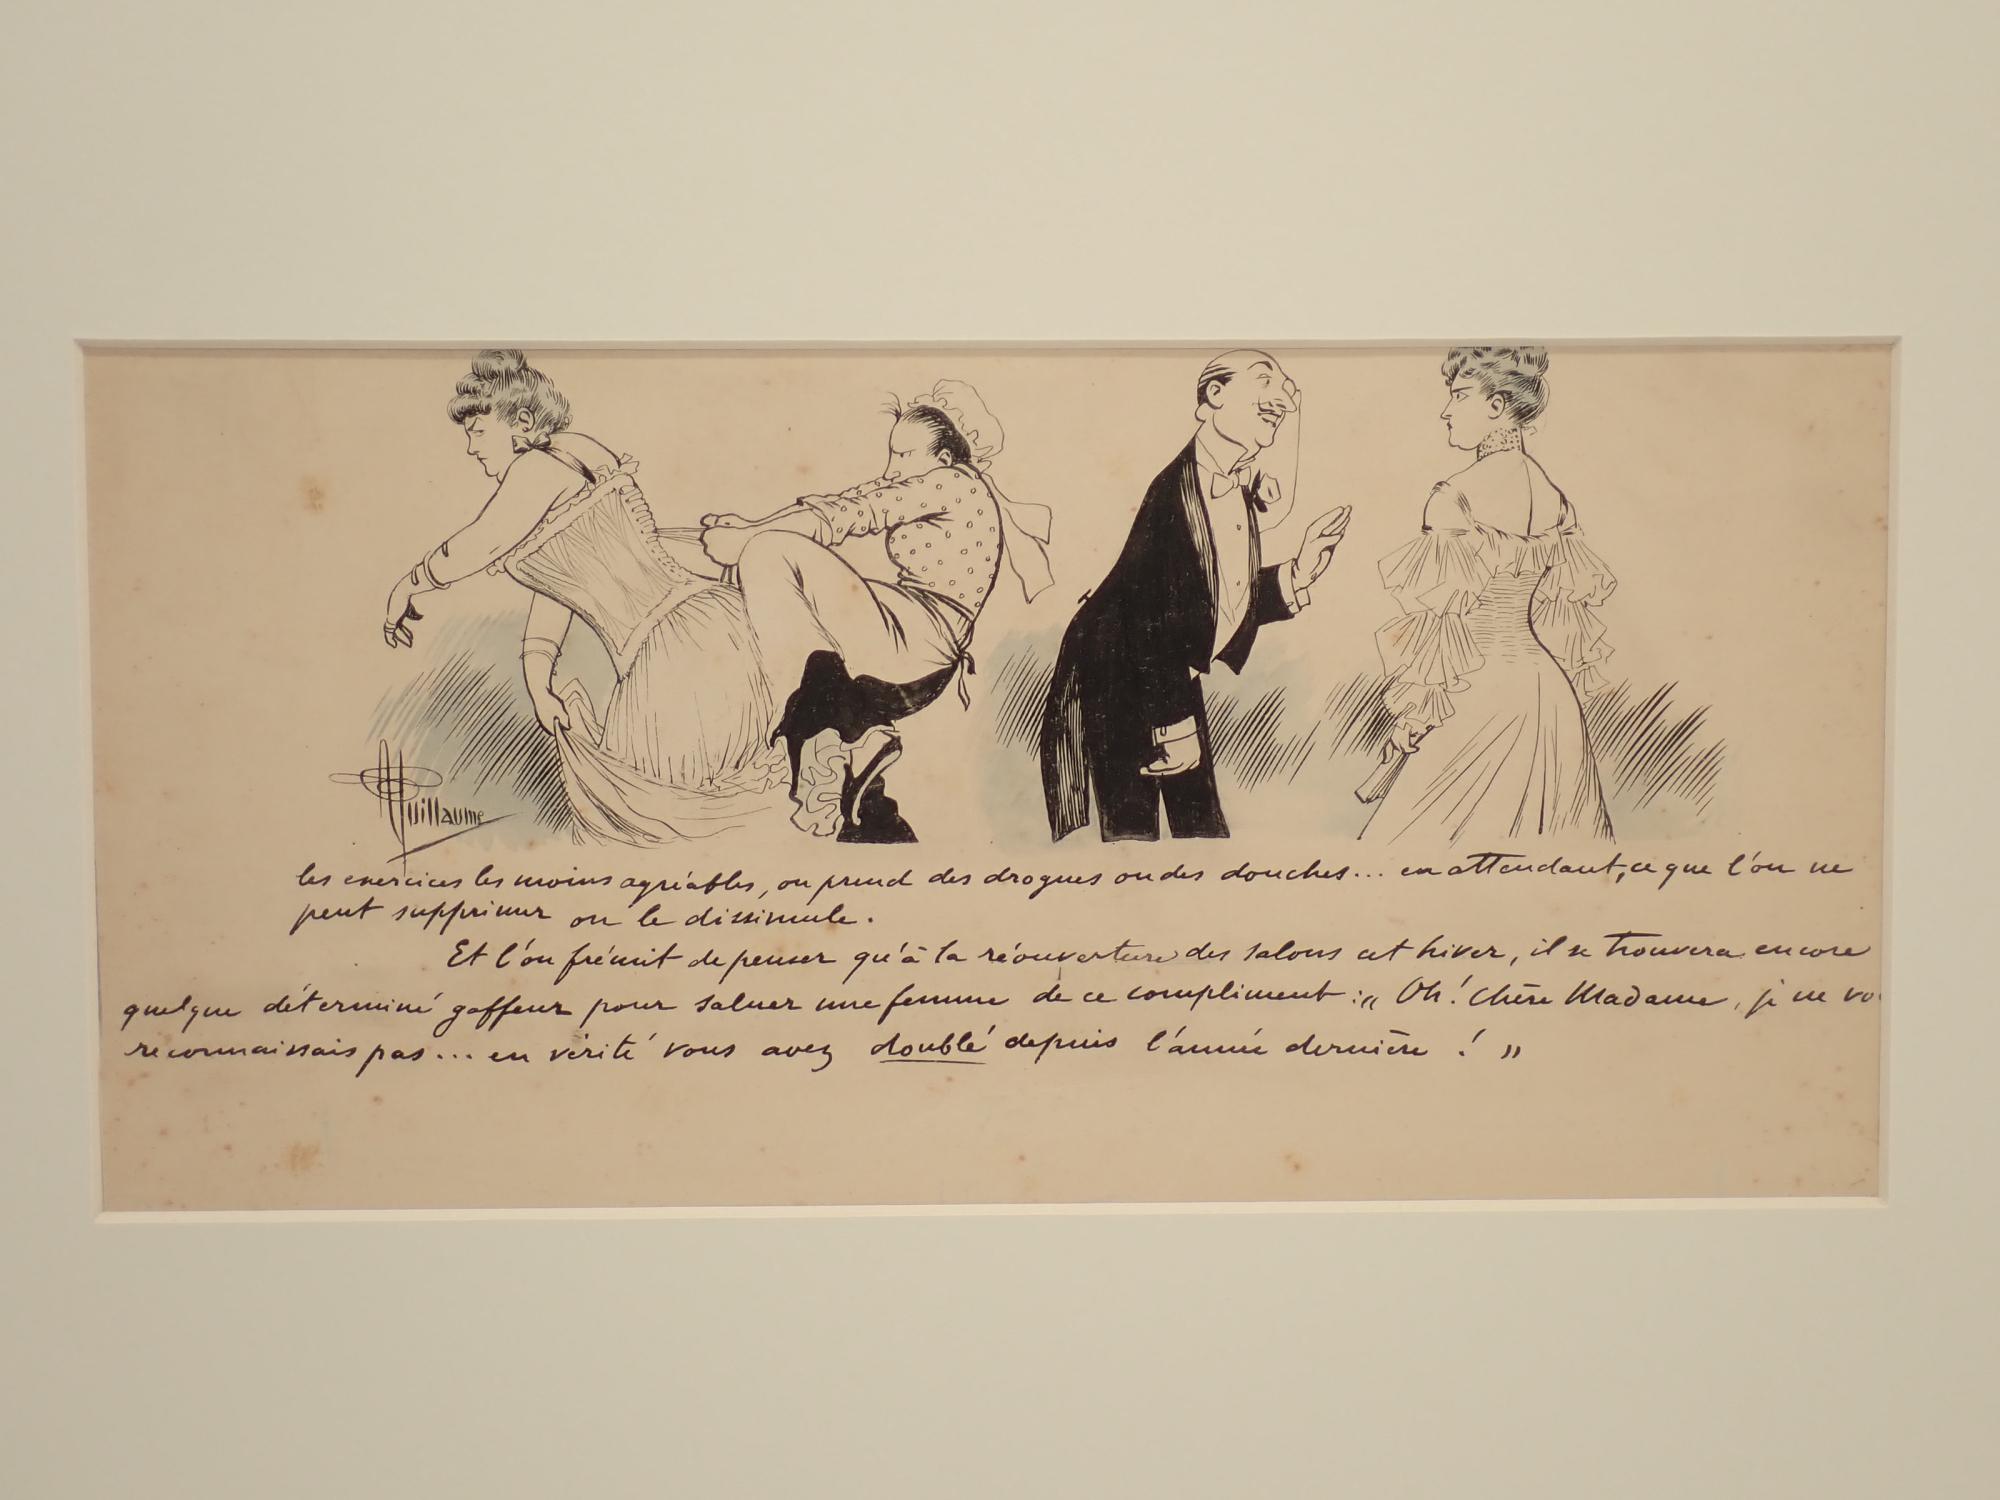 Guillaume
les exercices les moins agréables, on prend des drogues ou des douches... en attendant, ce que l'on ne
peut supprimer on le dissimule.
Et l'on frémit de penser qu'à la réouverture des salons cet hiver, il se trouvera encore
quelque déterminé gaffeur pour saluer une femme de ce compliment : „ Oh ! Chère Madame, je ne vo
reconnaissais pas... en vérité vous avez doublé depuis l'année dernière ! "